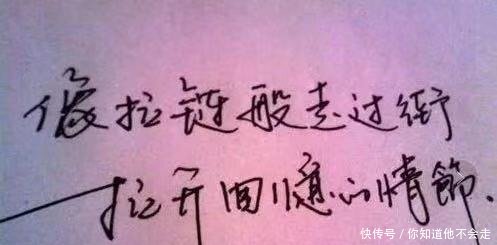 像拉链般走过街
拉开回憶的情節.
快传号/你知道他不会走